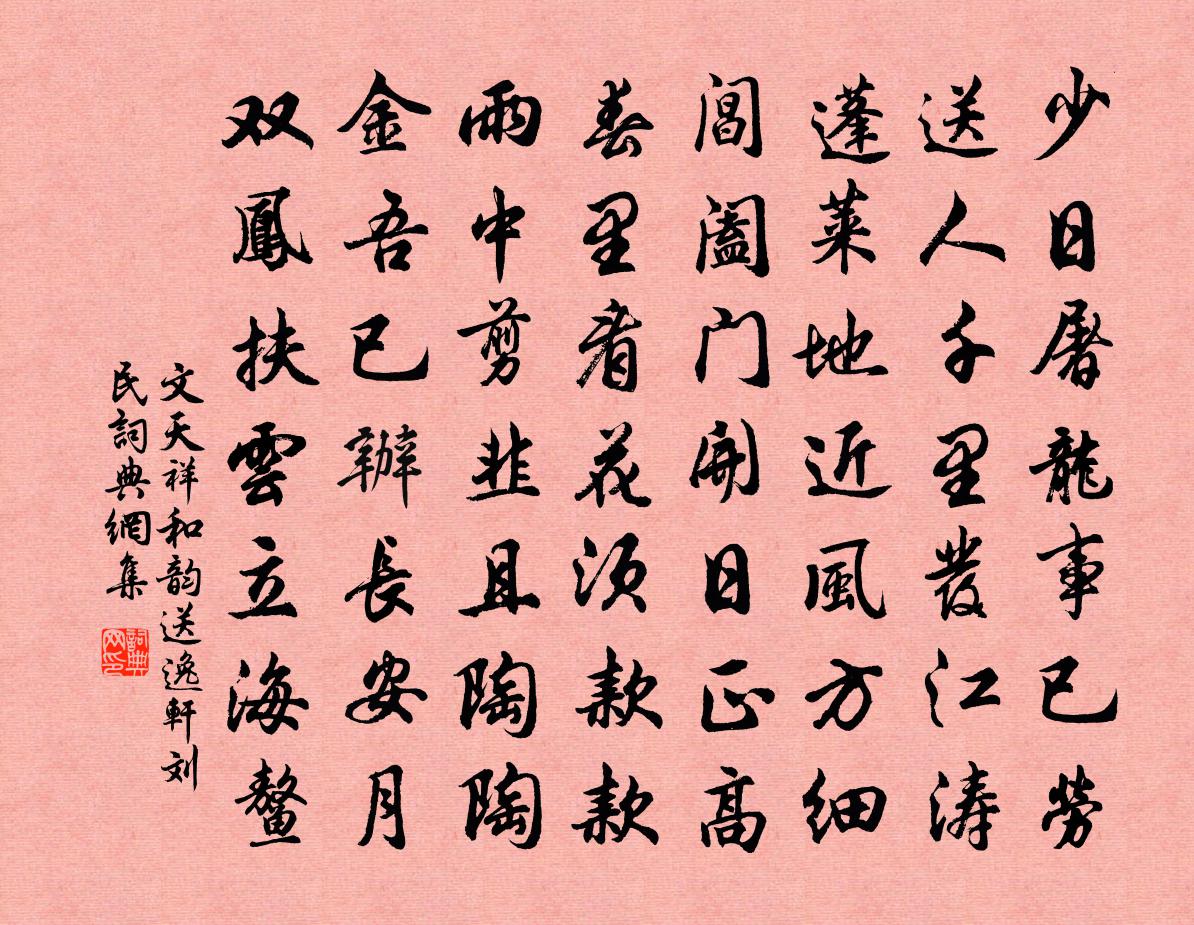 少日屠龍事已勞
送人千里發江涛
蓬莱地近風方细
閶阖门開日正高
春里看花须款款
雨中剪韭且陶陶
金吾已辦長安月
双鳳扶雲立海鳌
文天祥和韵送逸軒刘
民詞典網集
詞典网印